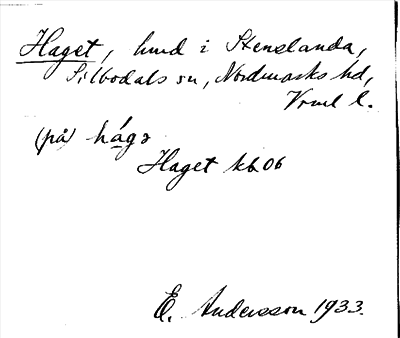 Haget, hmd i Stenslanda,
Silbodals sn, Nordmarks hd,
Vrml l.
(på) hágə
Haget kb 06
E. Andersson 1933.